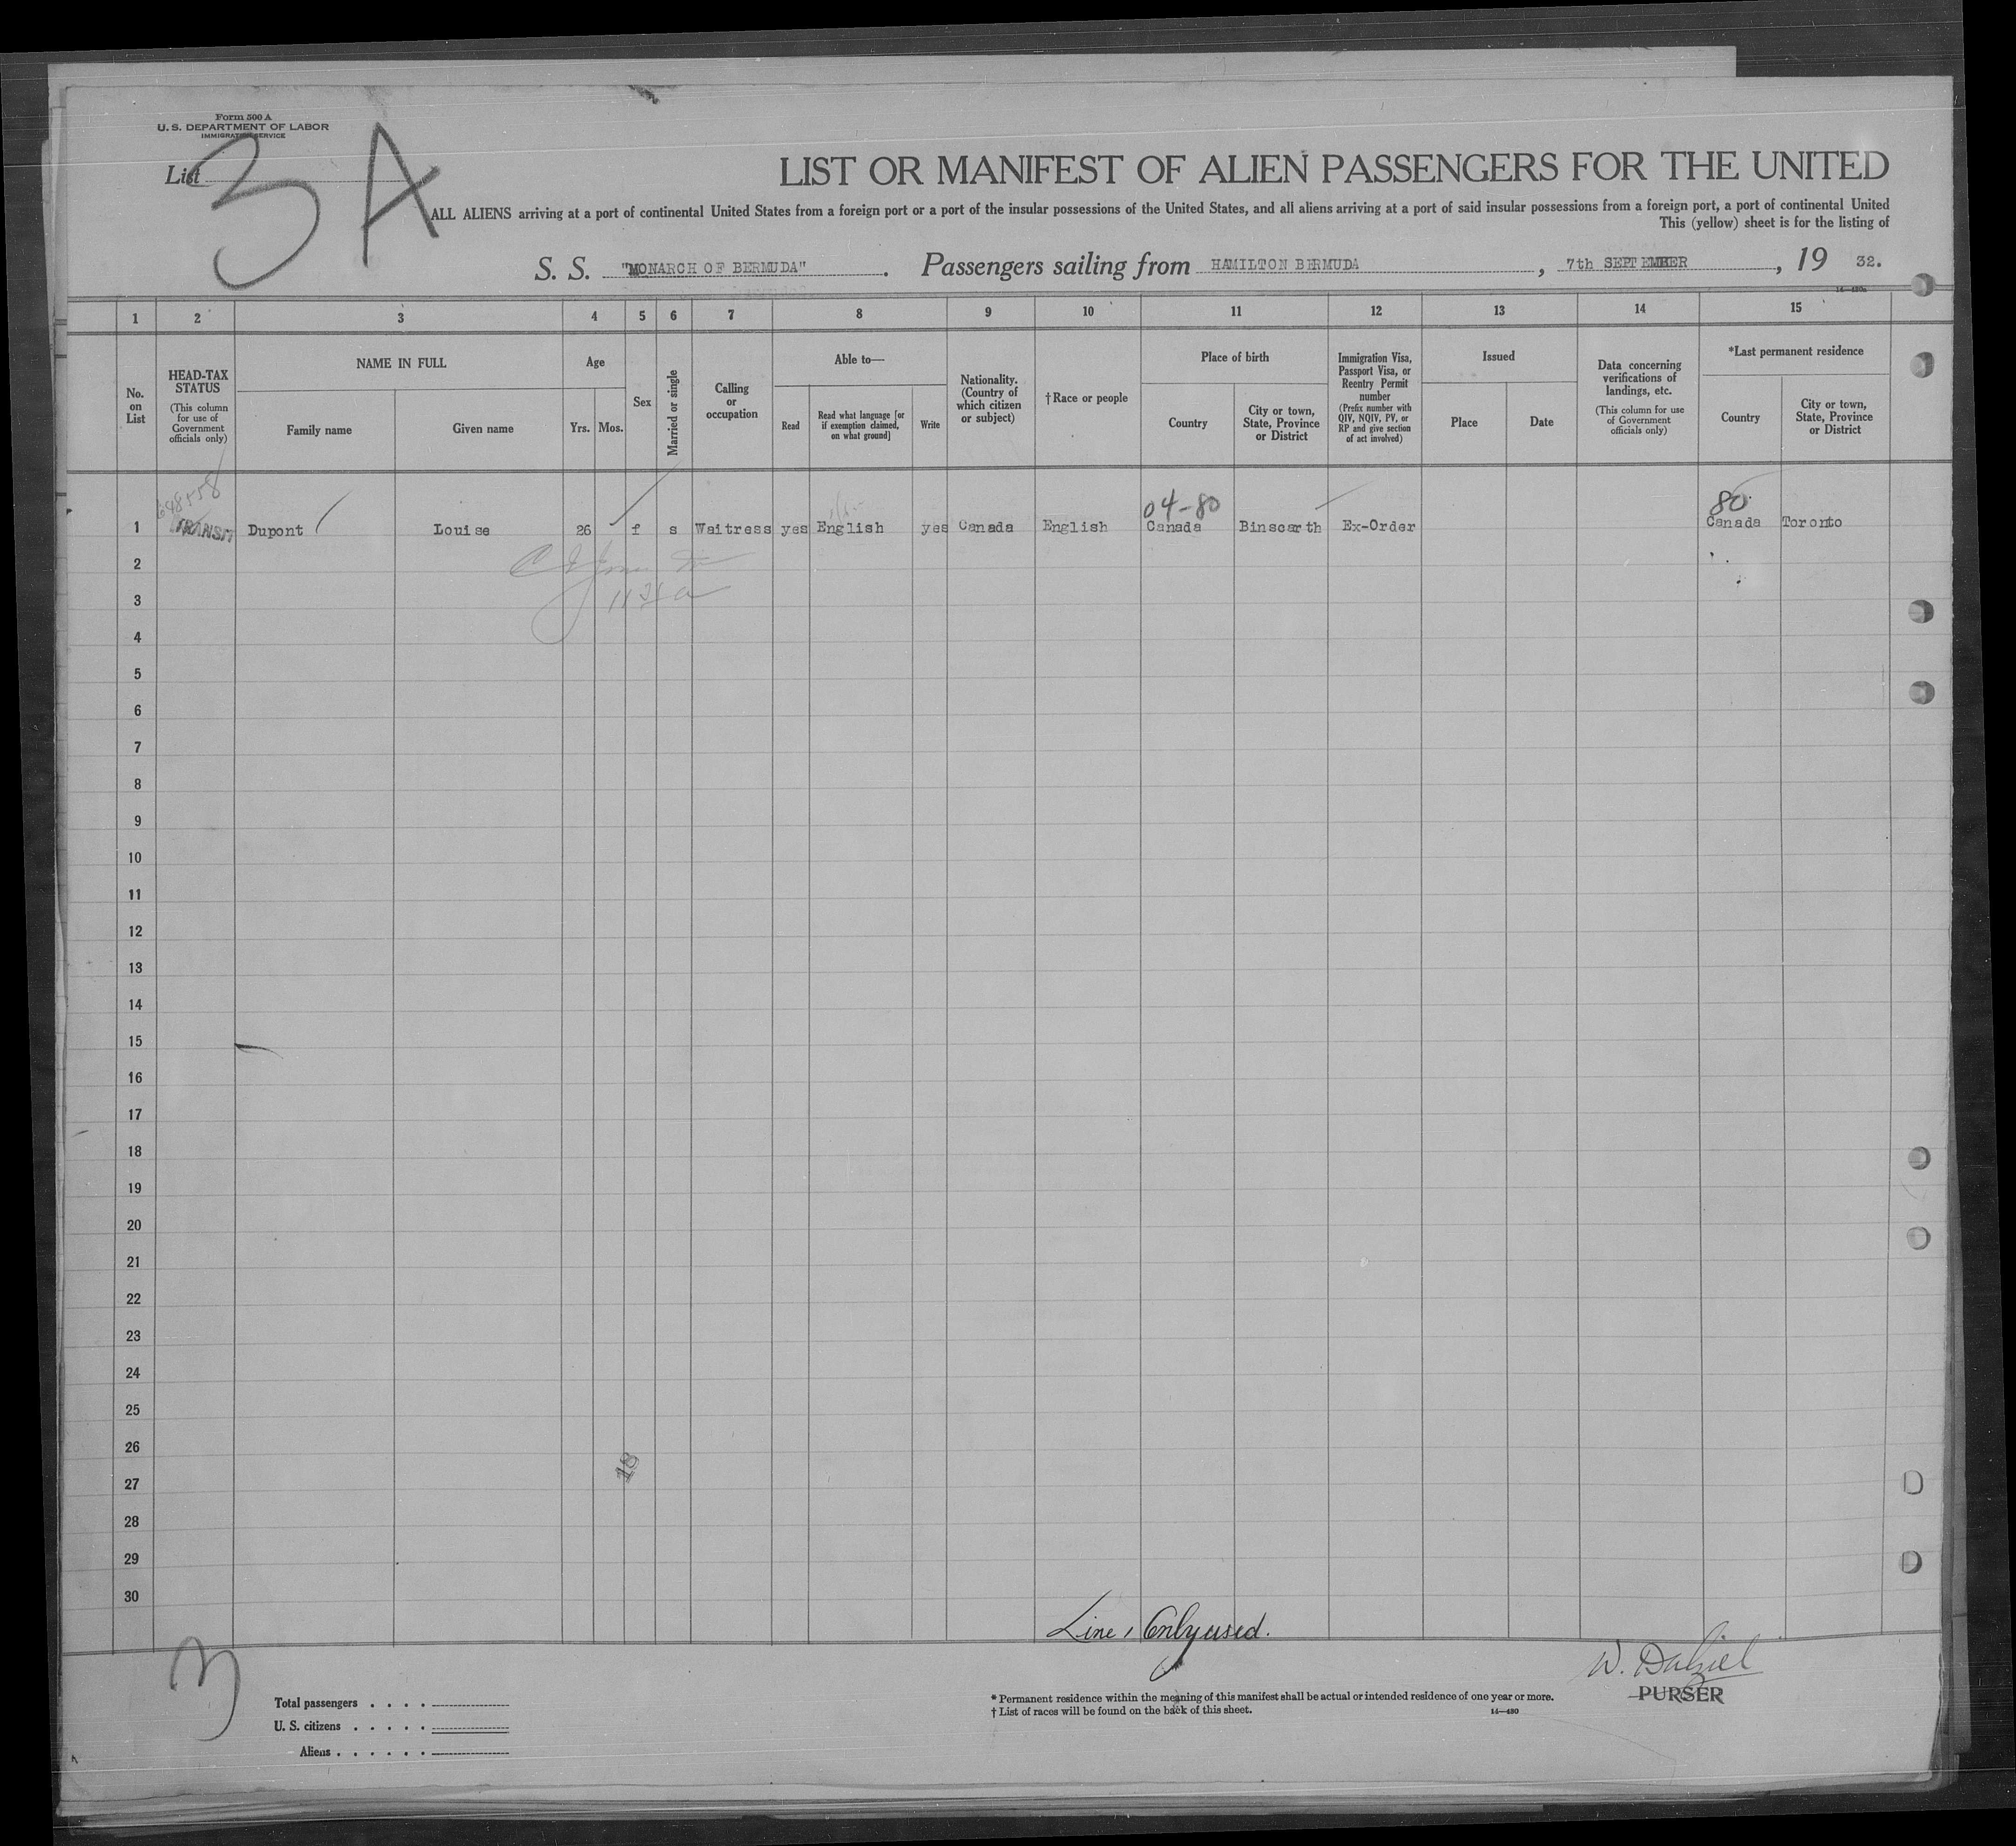 Form 500 A
U. S. DEPARTMENT OF LABOR
IMMIGRATION SERVICE
List 3 A
LIST OR MANIFEST OF ALIEN PASSENGERS FOR THE UNITED
ALL ALIENS arriving at a port of continental United States from a foreign port or a port of the insular possessions of the United States, and all aliens arriving at a port of said insular possessions from a foreign port, a port of continental United
This (yellow) sheet is for the listing of
S. S. "MONARCH OF BERMUDA". Passengers sailing from HAMILTON BERMUDA, 7th SEPTEMBER, 19 32.
14—430a
1 2 3 4 5 6 7 8 9 10 11 12 13 14 15
No. on List
HEAD-TAX STATUS
(This column for use of Government officials only)
NAME IN FULL
Family name Given name
Age
Yrs. Mos.
Sex
Married or single
Calling or occupation
Able to—
Read
Read what language [or if exemption claimed, on what ground]
Write
Nationality. (Country of which citizen or subject)
†Race or people
Place of birth
Country
City or town, State, Province or District
Immigration Visa, Passport Visa, or Reentry Permit number
(Prefix number with QIV, NQIV, PV, or RP and give section of act involved)
Issued
Place Date
Data concerning verifications of landings, etc.
(This column for use of Government officials only)
*Last permanent residence
Country
City or town, State, Province or District
648558
04-80 80
1 TRANSIT Dupont Louise 26 f s Waitress yes English yes Canada English Canada Binscarth Ex-Order Canada Toronto
2
3
4
5
6
7
8
9
10
11
12
13
14
15
16
17
18
19
20
21
22
23
24
25
26
18
27
28
29
30
Line 1 Only used.
3
W. Dalziel
PURSER
Total passengers . . . .
U. S. citizens . . . . .
Aliens . . . . . .
* Permanent residence within the meaning of this manifest shall be actual or intended residence of one year or more.
† List of races will be found on the back of this sheet.
14—430